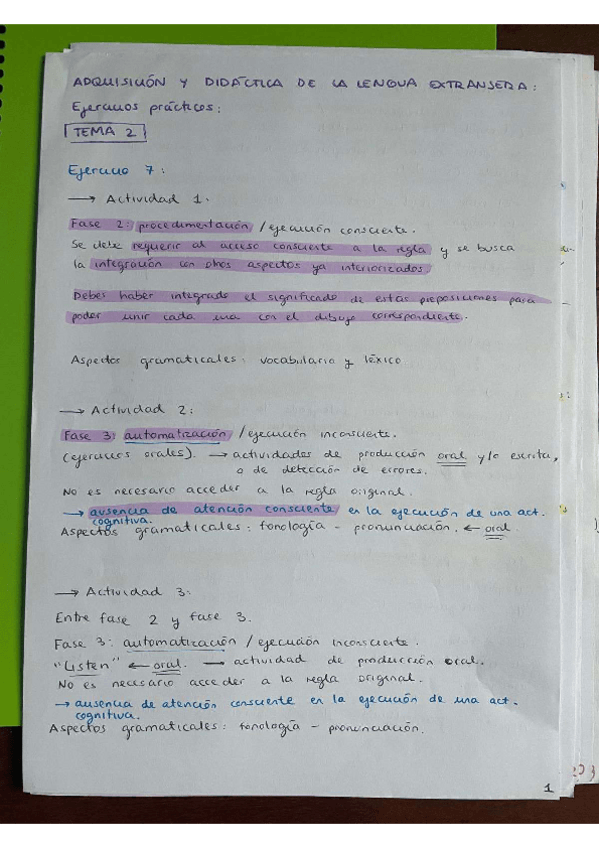 ADQUISICIÓN Y DIDÁCTICA DE LA LENGUA EXTRANJERA:
Ejercicios prácticos:
TEMA 2
Ejercicio 7:
→ Actividad 1.
Fase 2: procedimentación / ejecución consciente.
Se debe requerir al acceso consciente a la regla y se busca
la integración con otros aspectos ya interiorizados
Debes haber integrado el significado de estas preposiciones para
poder unir cada una con el dibujo correspondiente.
Aspectos gramaticales: vocabulario y léxico
→ Actividad 2:
Fase 3: automatización / ejecución inconsciente.
(ejercicios orales). → actividades de producción oral y/o escrita,
o de detección de errores.
No es necesario acceder a la regla original.
→ ausencia de atención consciente en la ejecución de una act.
cognitiva.
Aspectos gramaticales: fonología - pronunciación. ← oral
→ Actividad 3:
Entre fase 2 y fase 3.
Fase 3: automatización / ejecución inconsciente.
"Listen" ← oral. → actividad de producción oral.
No es necesario acceder a la regla original.
→ ausencia de atención consciente en la ejecución de una act.
cognitiva.
Aspectos gramaticales: fonología - pronunciación.
1